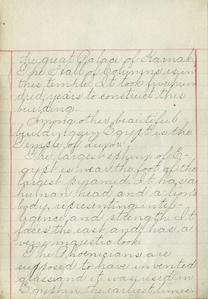 The great Palace of Karnak
The Hall of Columns is in
this temple. It took five hun-
dred years to construct this
building.
Among other beautiful
buildings in Egypt is the
Temple of Luxor.
The largest sphinx of E-
gypt is near the foot of the
largest pyramid. It has a
human head and a lion
body, representing intel-
ligence and strength. It
faces the east and has a
very majestic look.
The Phoenicians are
supposed to have invented
glass and it was used in
Egypt in the earliest times